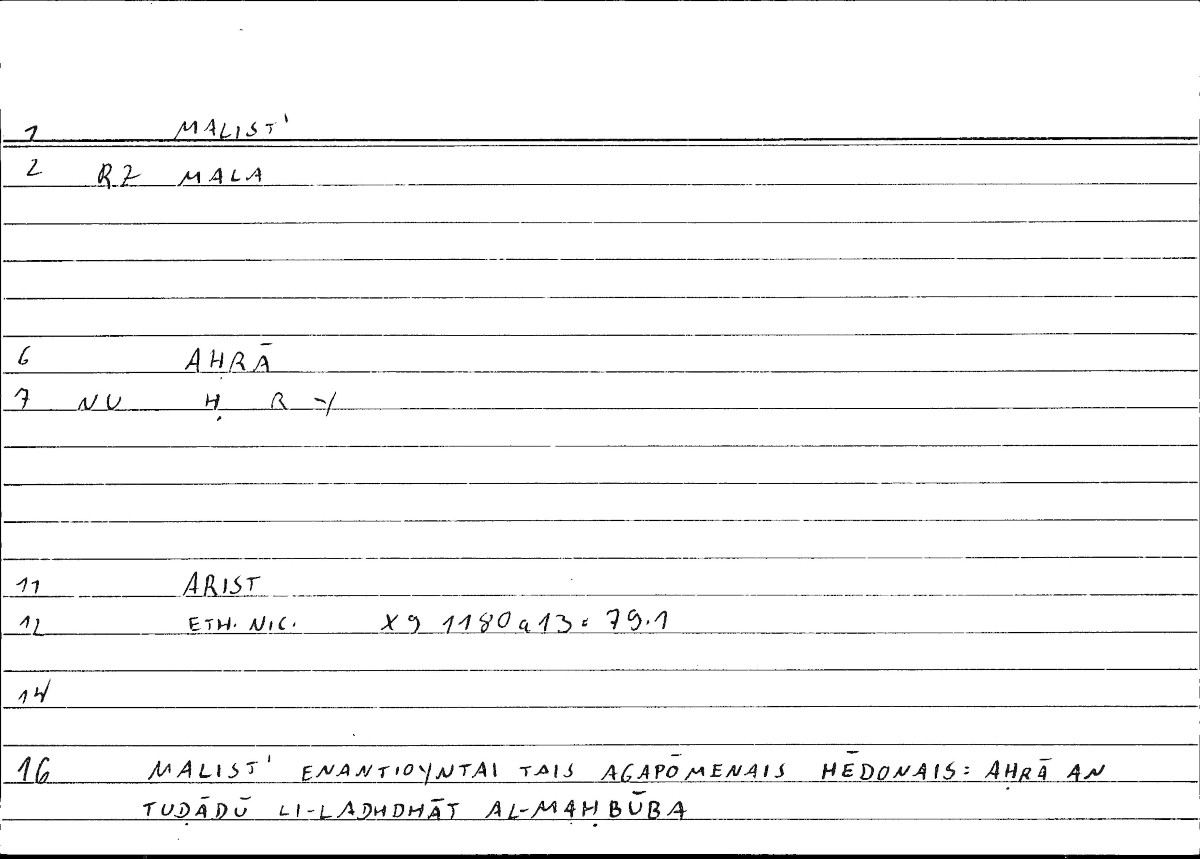 1 MALIST'
2 RZ MALA
6 AḤRĀ
7 NU Ḥ R Y
11 ARIST
12 ETH. NIC. X9 1180a13 = 79.1
14
16 MALIST' ENANTIOYNTAI TAIS AGAPŌMENAIS HĒDONAIS: AḤRĀ AN
TUḌĀDŪ LI-LADHDHĀT AL-MAḤBŪBA